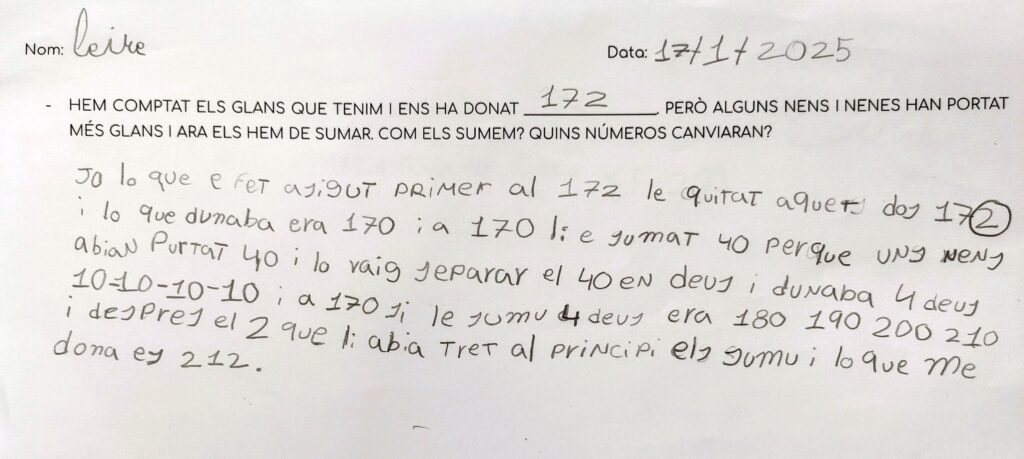 Nom: leire Data: 17/1/2025
- HEM COMPTAT ELS GLANS QUE TENIM I ENS HA DONAT 172 PERÒ ALGUNS NENS I NENES HAN PORTAT
MÉS GLANS I ARA ELS HEM DE SUMAR. COM ELS SUMEM? QUINS NÚMEROS CANVIARAN?
Jo lo que e FeT asigut PRimer al 172 le quitat aquets dos 172
i lo que dunaba era 170 i a 170 li e sumat 40 perque uns nens
abian Purtat 40 i lo vaig separar el 40 en deus i dunaba 4 deus
10-10-10-10 i a 170 si le sumu 4 deus era 180 190 200 210
i despres el 2 que li abia tret al principi els sumu i lo que me
dona es 212.